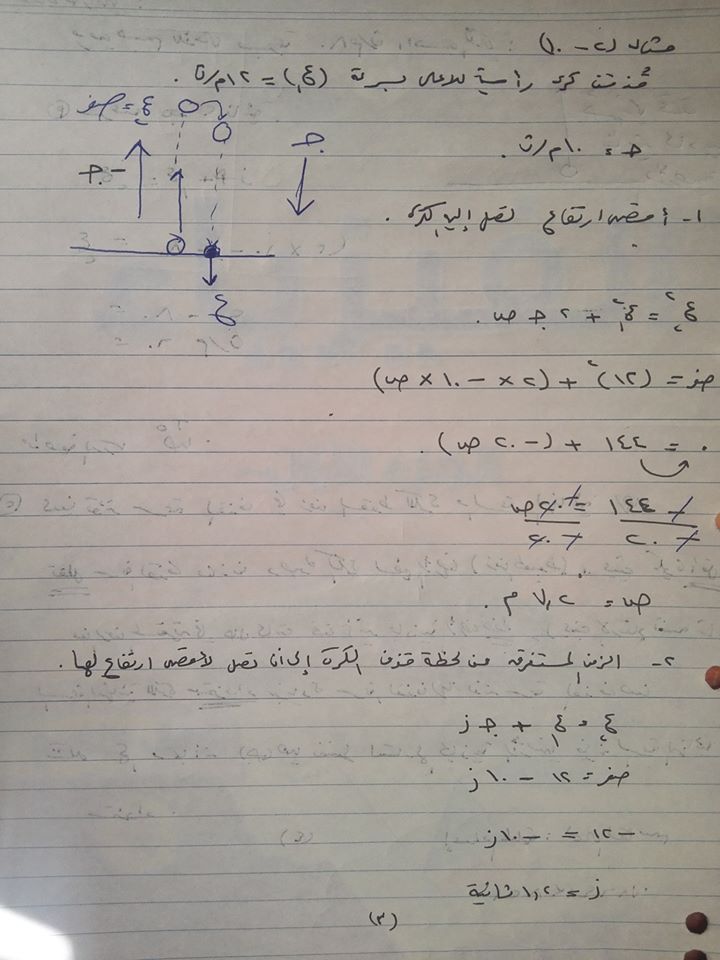 مثال (٢-١٠)
قُذفت كرة رأسية للأعلى بسرعة (ع١) = ١٢م/ث.
ع٢ = صفر
جـ = ١٠م/ث.
جـ
-جـ
١- أقصى ارتفاع تصل إليه الكرة.
ع
ع٢² = ع١² + ٢ جـ ص.
صفر = (١٢)² + (٢ × -١٠ × ص)
٠ = ١٤٤ + (-٢٠ ص).
-١٤٤ / -٢٠ = -٢٠ص / -٢٠
ص = ٧,٢ م.
٢- الزمن المستغرقه من لحظة قذف الكرة إلى أن تصل لأقصى ارتفاع لها.
ع٢ = ع١ + جـ ز
صفر = ١٢ - ١٠ز
-١٢ = -١٠ز
ز = ١,٢ ثانية
(٣)